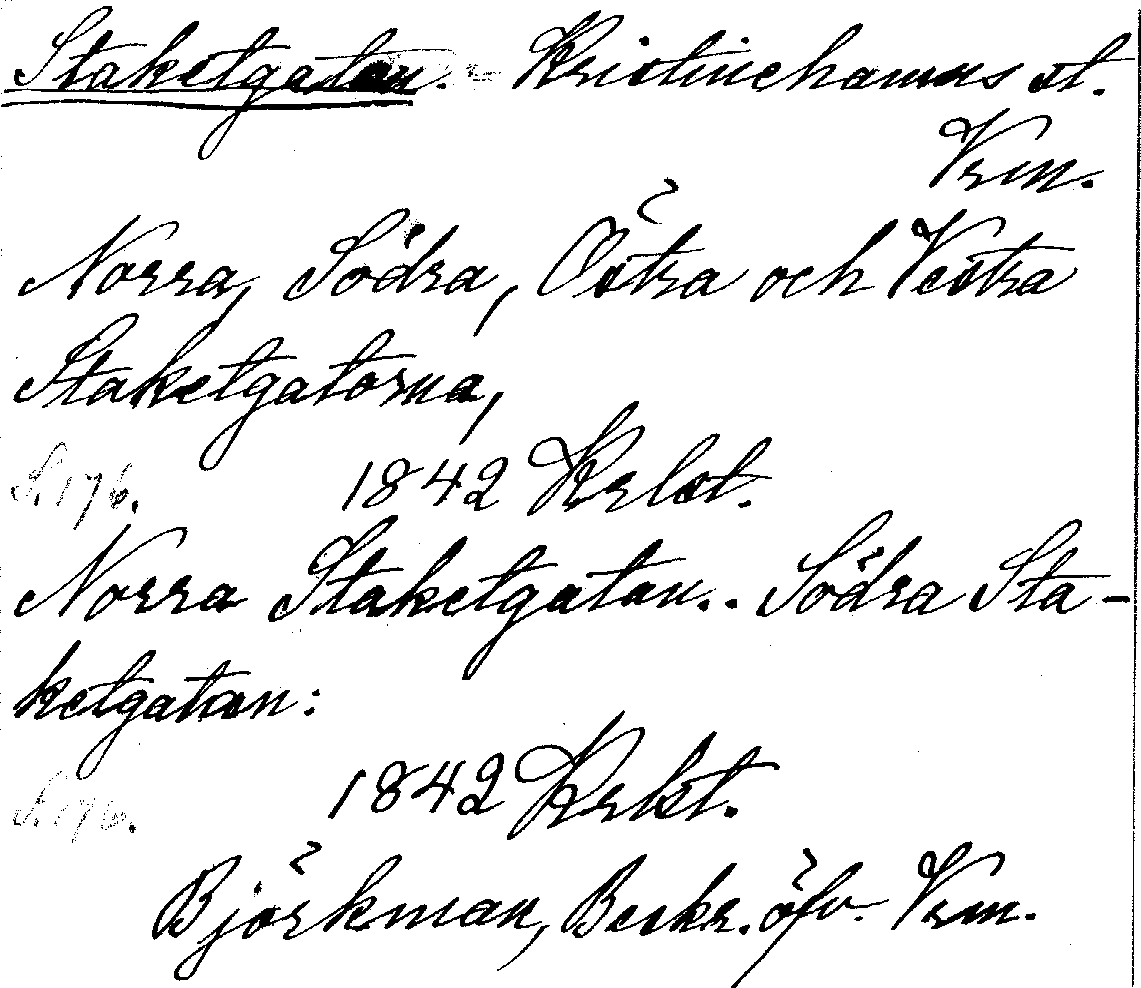 Staketgatan. - Kristinehamns st.
Vrm.
Norra, Södra, Östra och Vestra
Staketgatorna,
S. 176. 1842 Krlst.
Norra Staketgatan.. Södra Sta-
ketgatan:
S. 176. 1842 Krlst.
Björkman, Beskr. öfv. Vrm.